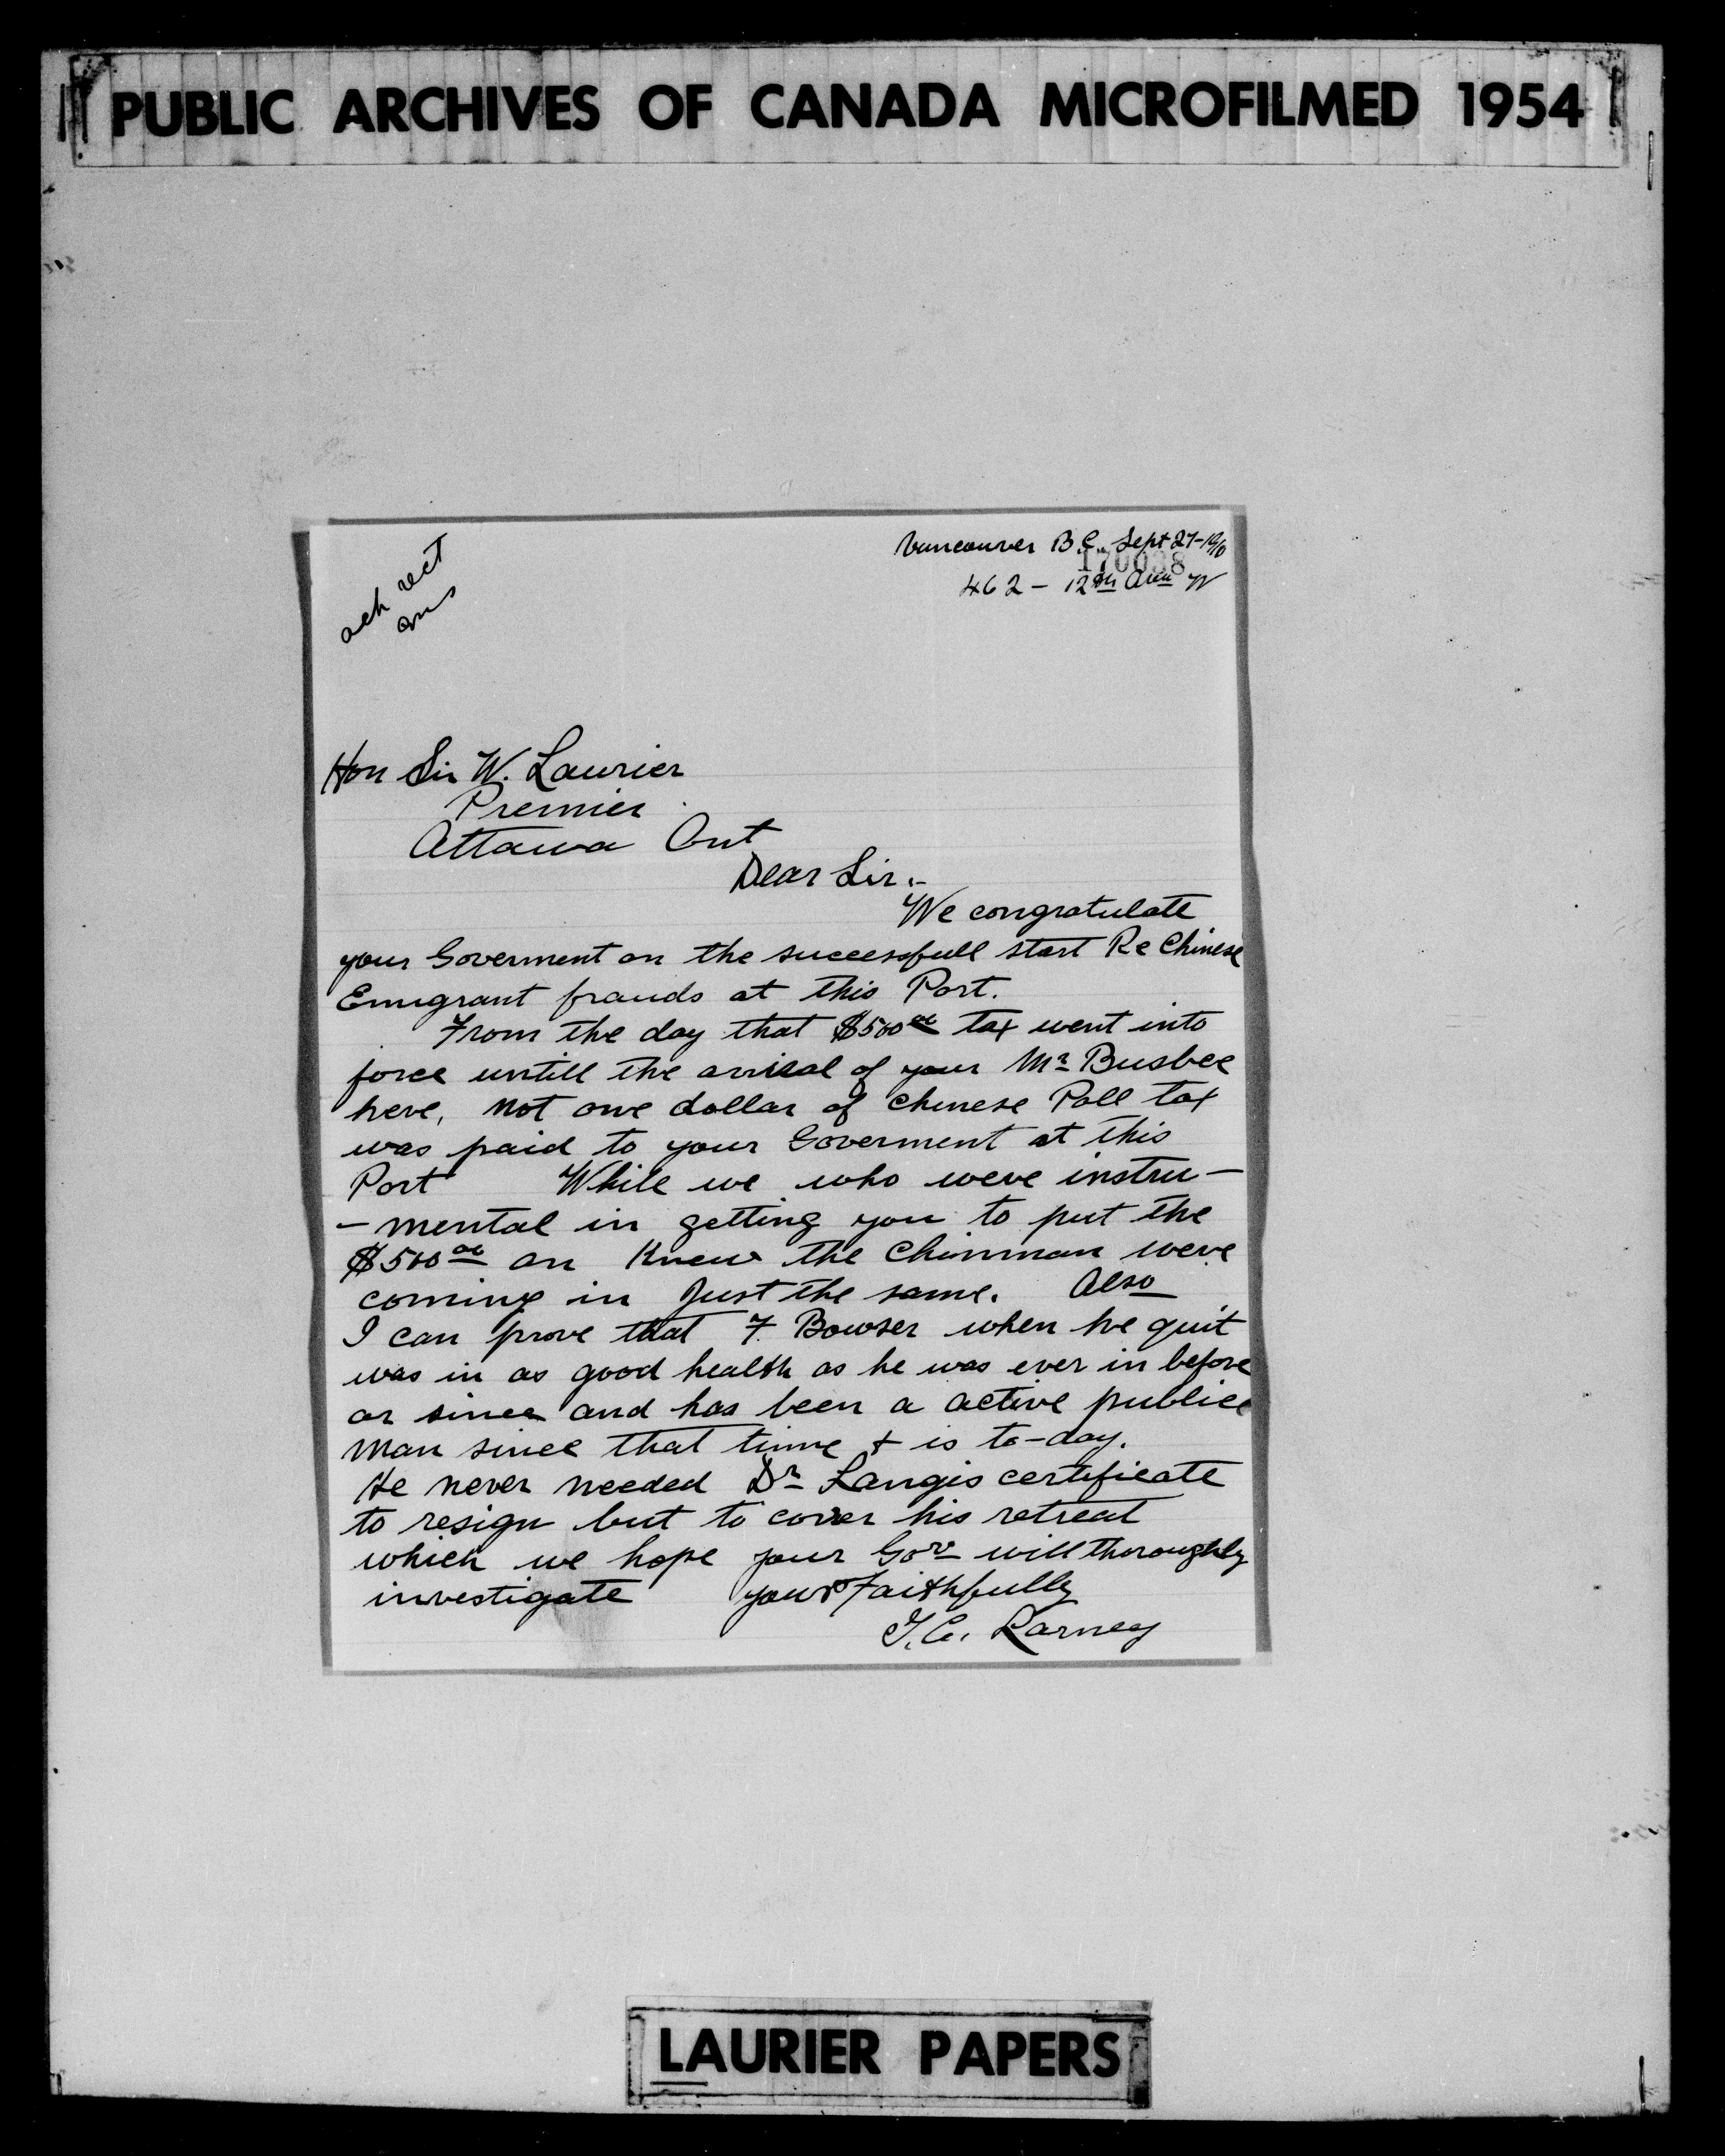 PUBLIC ARCHIVES OF CANADA MICROFILMED 1954
Vancouver B.C. Sept 27-1910
170038
462 - 12th Ave W
ack rect
ans
Hon Sir W. Laurier
Premier
Ottawa Ont
Dear Sir.-
We congratulate
your Goverment on the successfull start Re Chinese
Emigrant frauds at this Port.
From the day that $500 00 tax went into
force untill the arrival of your Mr Busbee
here, not one dollar of Chinese Poll tax
was paid to your Goverment at this
Port While we who were instru-
-mental in getting you to put the
$500 00 on Knew the Chinman were
coming in Just the same. Also
I can prove that F. Bowser when he quit
was in as good health as he was ever in before
or since and has been a active public
man since that time + is to-day.
He never needed Dr Langis certificate
to resign but to cover his retreat
which we hope your Gov will thoroughly
investigate yours Faithfully
Larney
LAURIER PAPERS